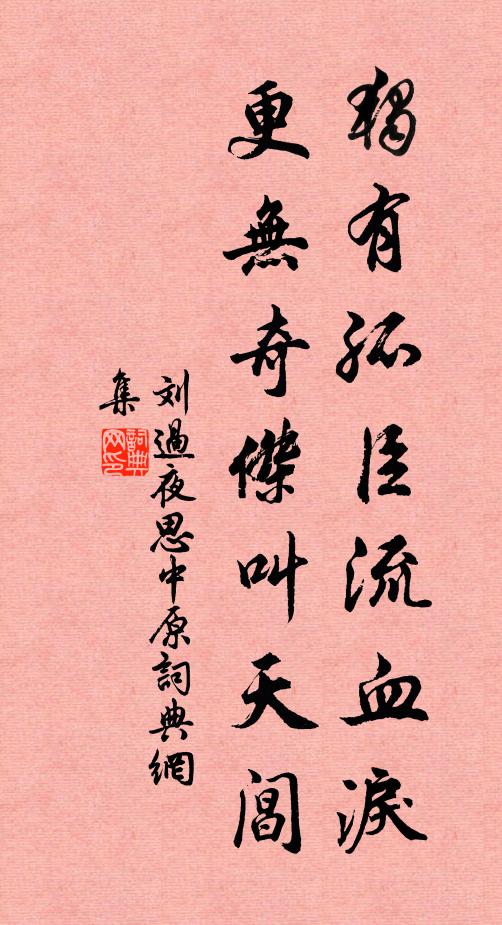 獨有孤臣流血淚
更無奇傑叫天閶
刘過夜思中原詞典網
集
詞典
网印